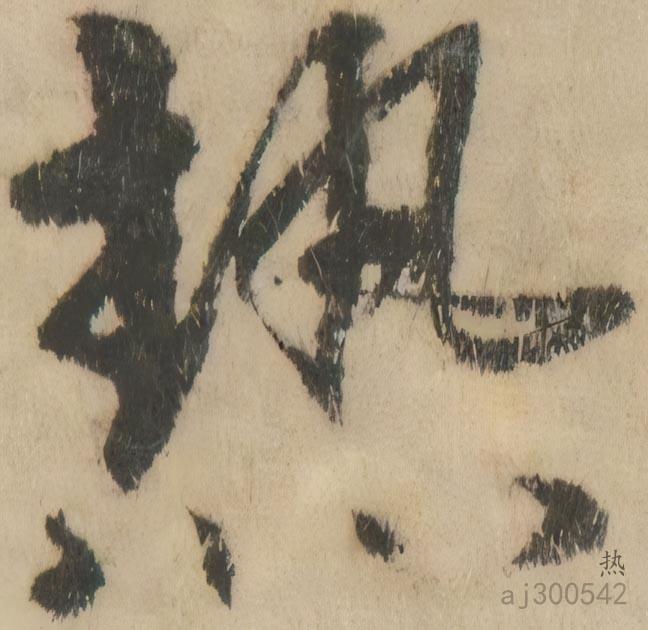 热
热
aj300542